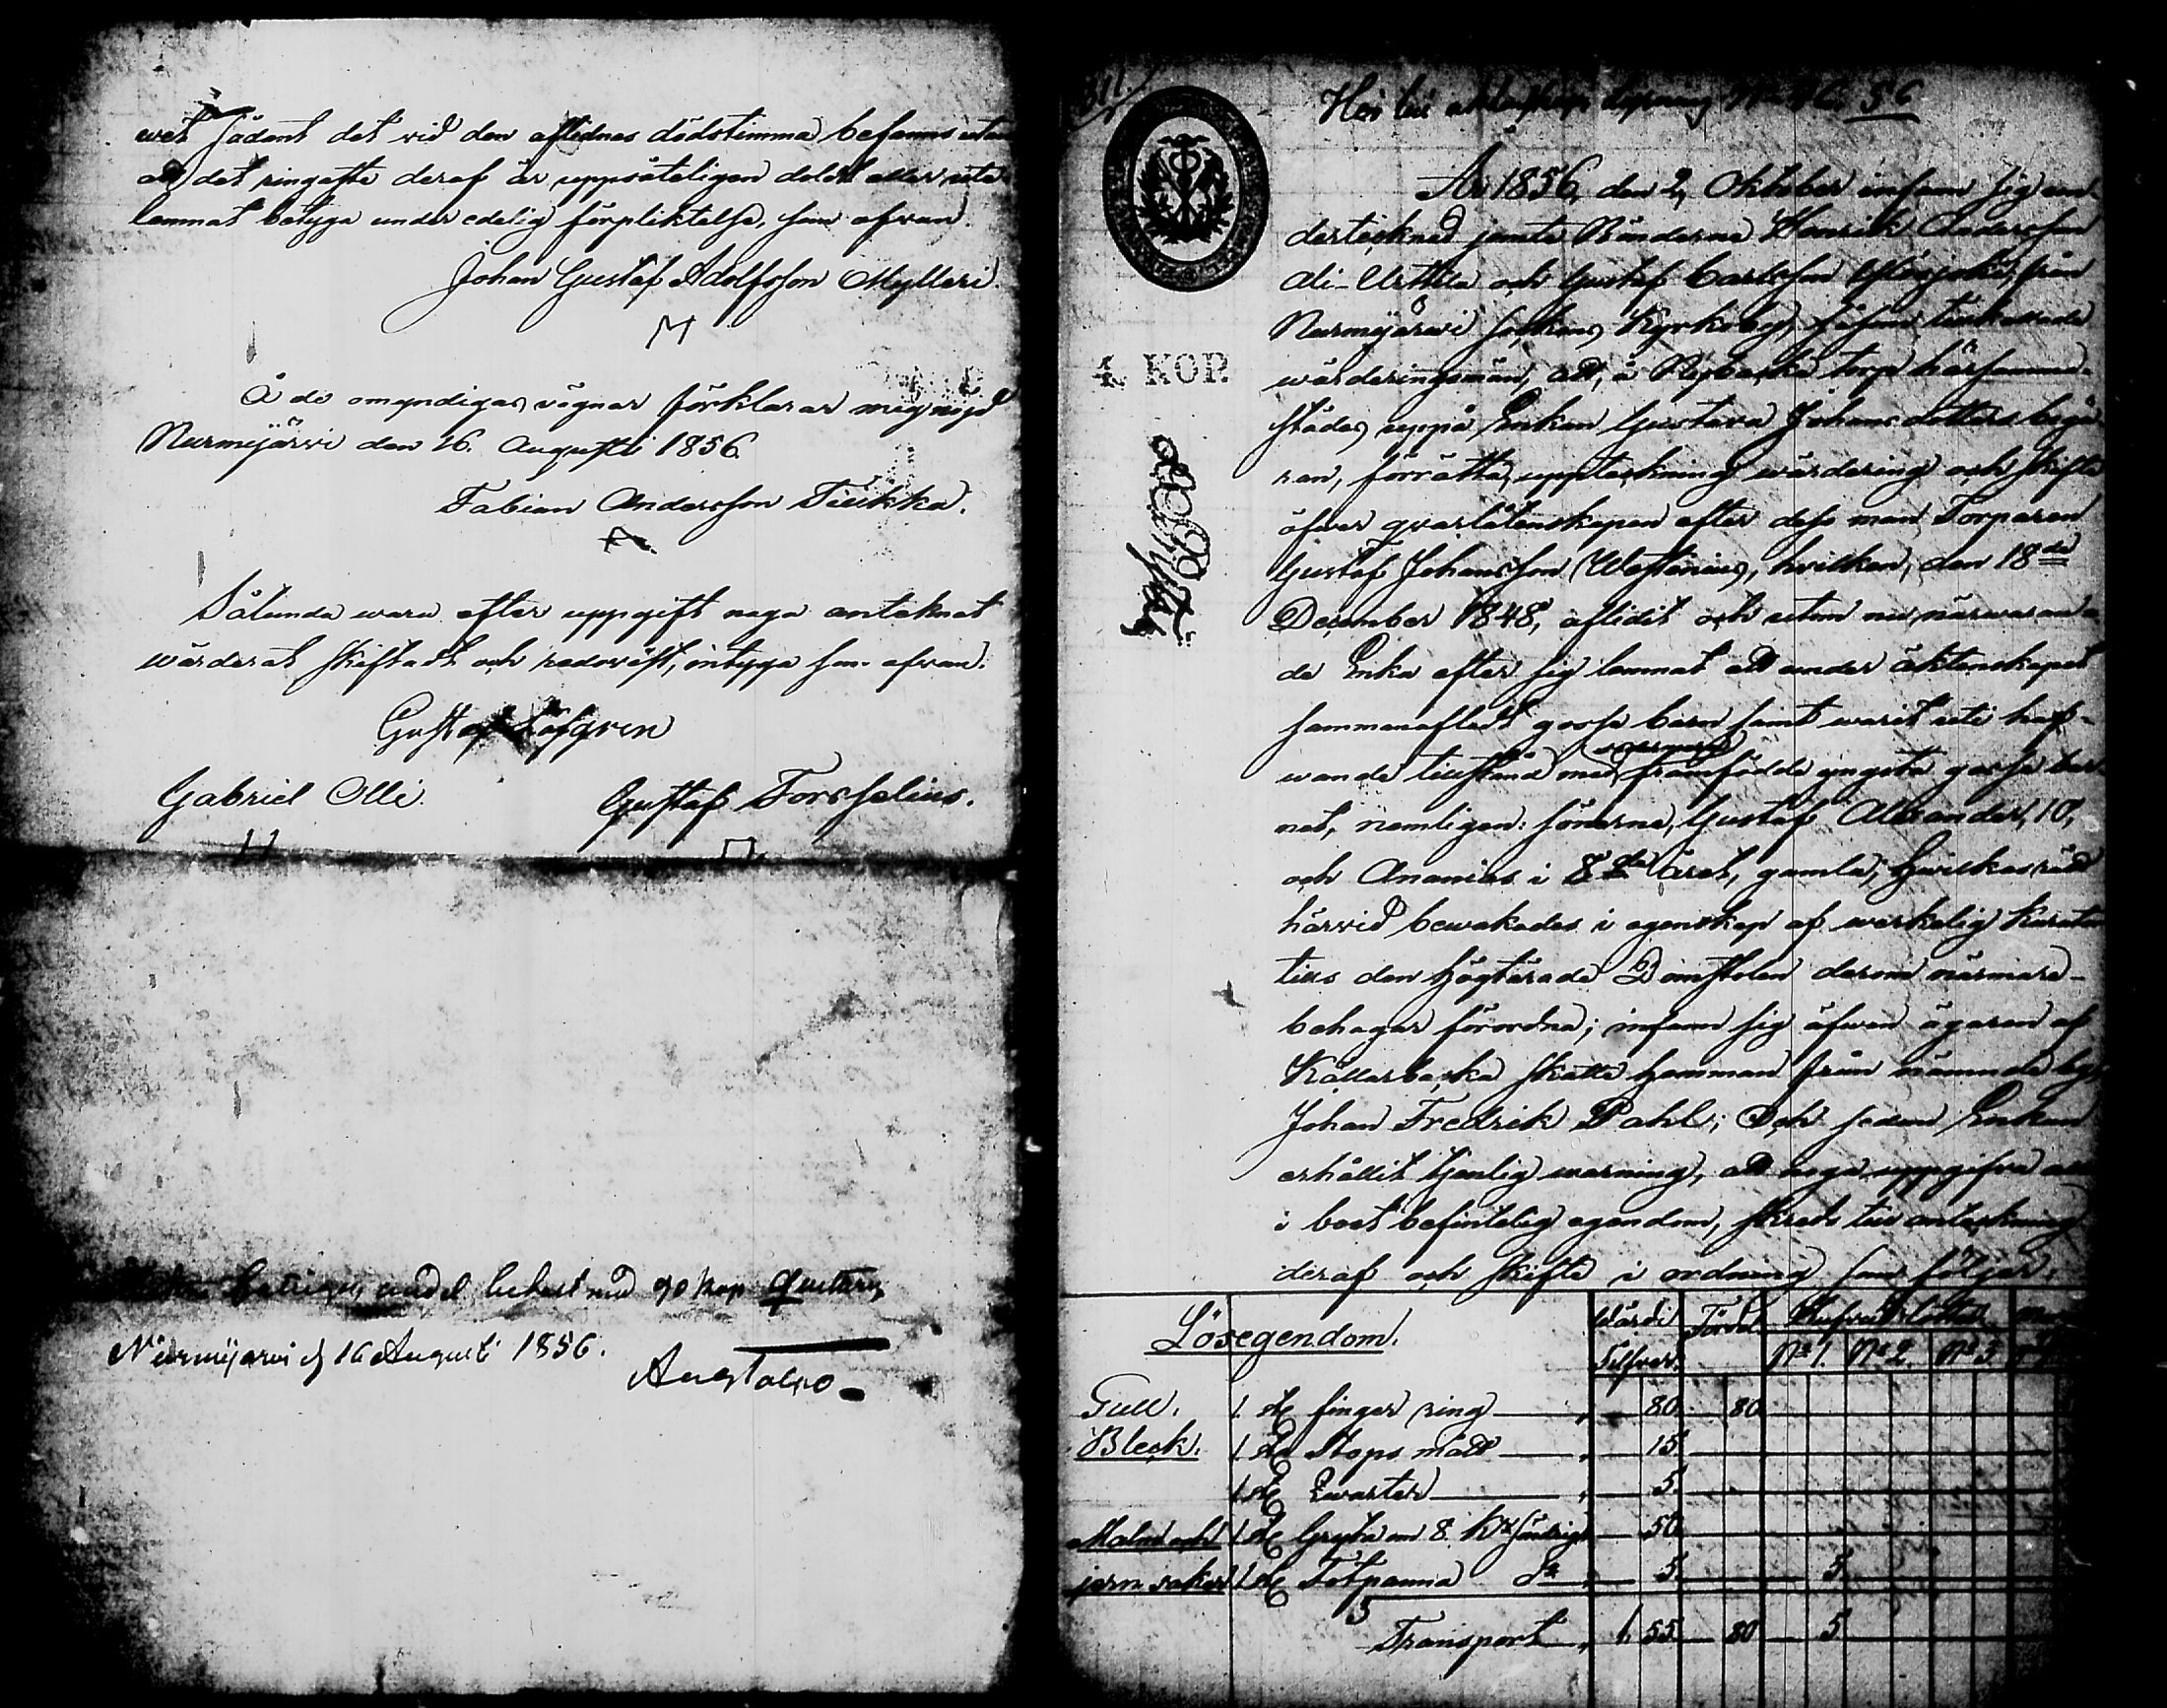 wet sådant det vid den aflednes dödstimma befanns utan
att det ringaste deraf är uppsåteligen doldt eller ute
lemnat betyga under edelig förpliktelse, som ofvan.
Johan Gustaf Adolfsson Mylleri.
Å de omyndigas vägnar förklarar mig nöjd
Nurmijärvi den 16. Augusti 1856.
Fabian Andersson Tiukka.
Sålunda wara efter uppgift noga anteknat
wärderat skiftadt och redovist, intyga som ofvan.
Gustaf Löfgren
Gabriel Olli.
Gustaf Forsselius.
andel liqviderad med 90 kop
Nurmijärvi d 16 Augusti 1856.
311.
56
År 1856, den 2, Oktober infann sig un-
dertecknad jemte Bönderne Henrik Andersson
Ali-Urttila och Gustaf Carlsson från
Nurmijärvi Sockens Kyrkoby, såsom tillkallade
wärderingsmän, att, å Nybacka torp härsamma-
städes, uppå Enkan Gustava Johansdotters begä-
4. KOP.
ran, förrätta uppteckning wärdering och skifte
öfver qvarlåtenskapen efter dess man Torparen
Gustaf Johansson Westenius, hvilken, den 18de
December 1848, aflidit och utom nu närwaran-
de Enka efter sig lemnat ett under äktenskapet
sammanafladt gosse barn samt warit uti haf-
wande tillstånd med framfödde yngsta gosse bar-
net, nemligen: sönerna, Gustaf Alexander, 10,
och Ananias i 8de året, gamla; hvilkas rätt
härvid bewakades i egenskap af werkelig Kurator
tills den Högtärade Domstolen derom närmare
behagar förordna; infann sig äfwen ägaren af
Källarbacka Skatte hemman från nämnde by,
Johan Fredrik Dahl; Och sedan Enkan
erhållit tjenlig warning, att noga uppgifva all
i boet befintelig egendom, skreds till anteckning
deraf och skifte i ordning som följer.
Lösegendom.
Wärde
Silfver.
Förd.
No 1. No 2. No 3.
Gull. 1 st finger ring 80. 80
Bleck. 1 st Stops mått 15.
1 st Qwarter 5
Malm och 1 st Gryta om 8. 50
jern saker 1 st Fotpanna do 5. 5
Transport 1. 55. 80 5.